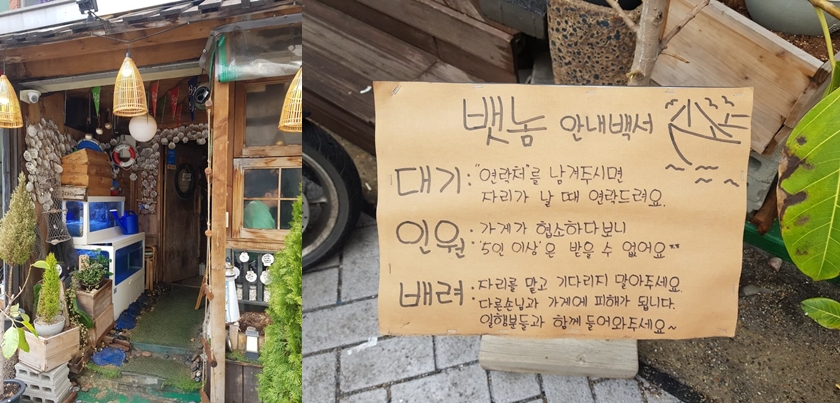 뱃놈 안내백서
대기: "연락처"를 남겨주시면
자리가 날 때 연락드려요.
인원: 가게가 협소하다보니
'5인 이상'은 받을 수 없어요ㅠㅠ
배려: 자리를 맡고 기다리지 말아주세요.
다른손님과 가게에 피해가 됩니다.
일행분들과 함께 들어와주세요~